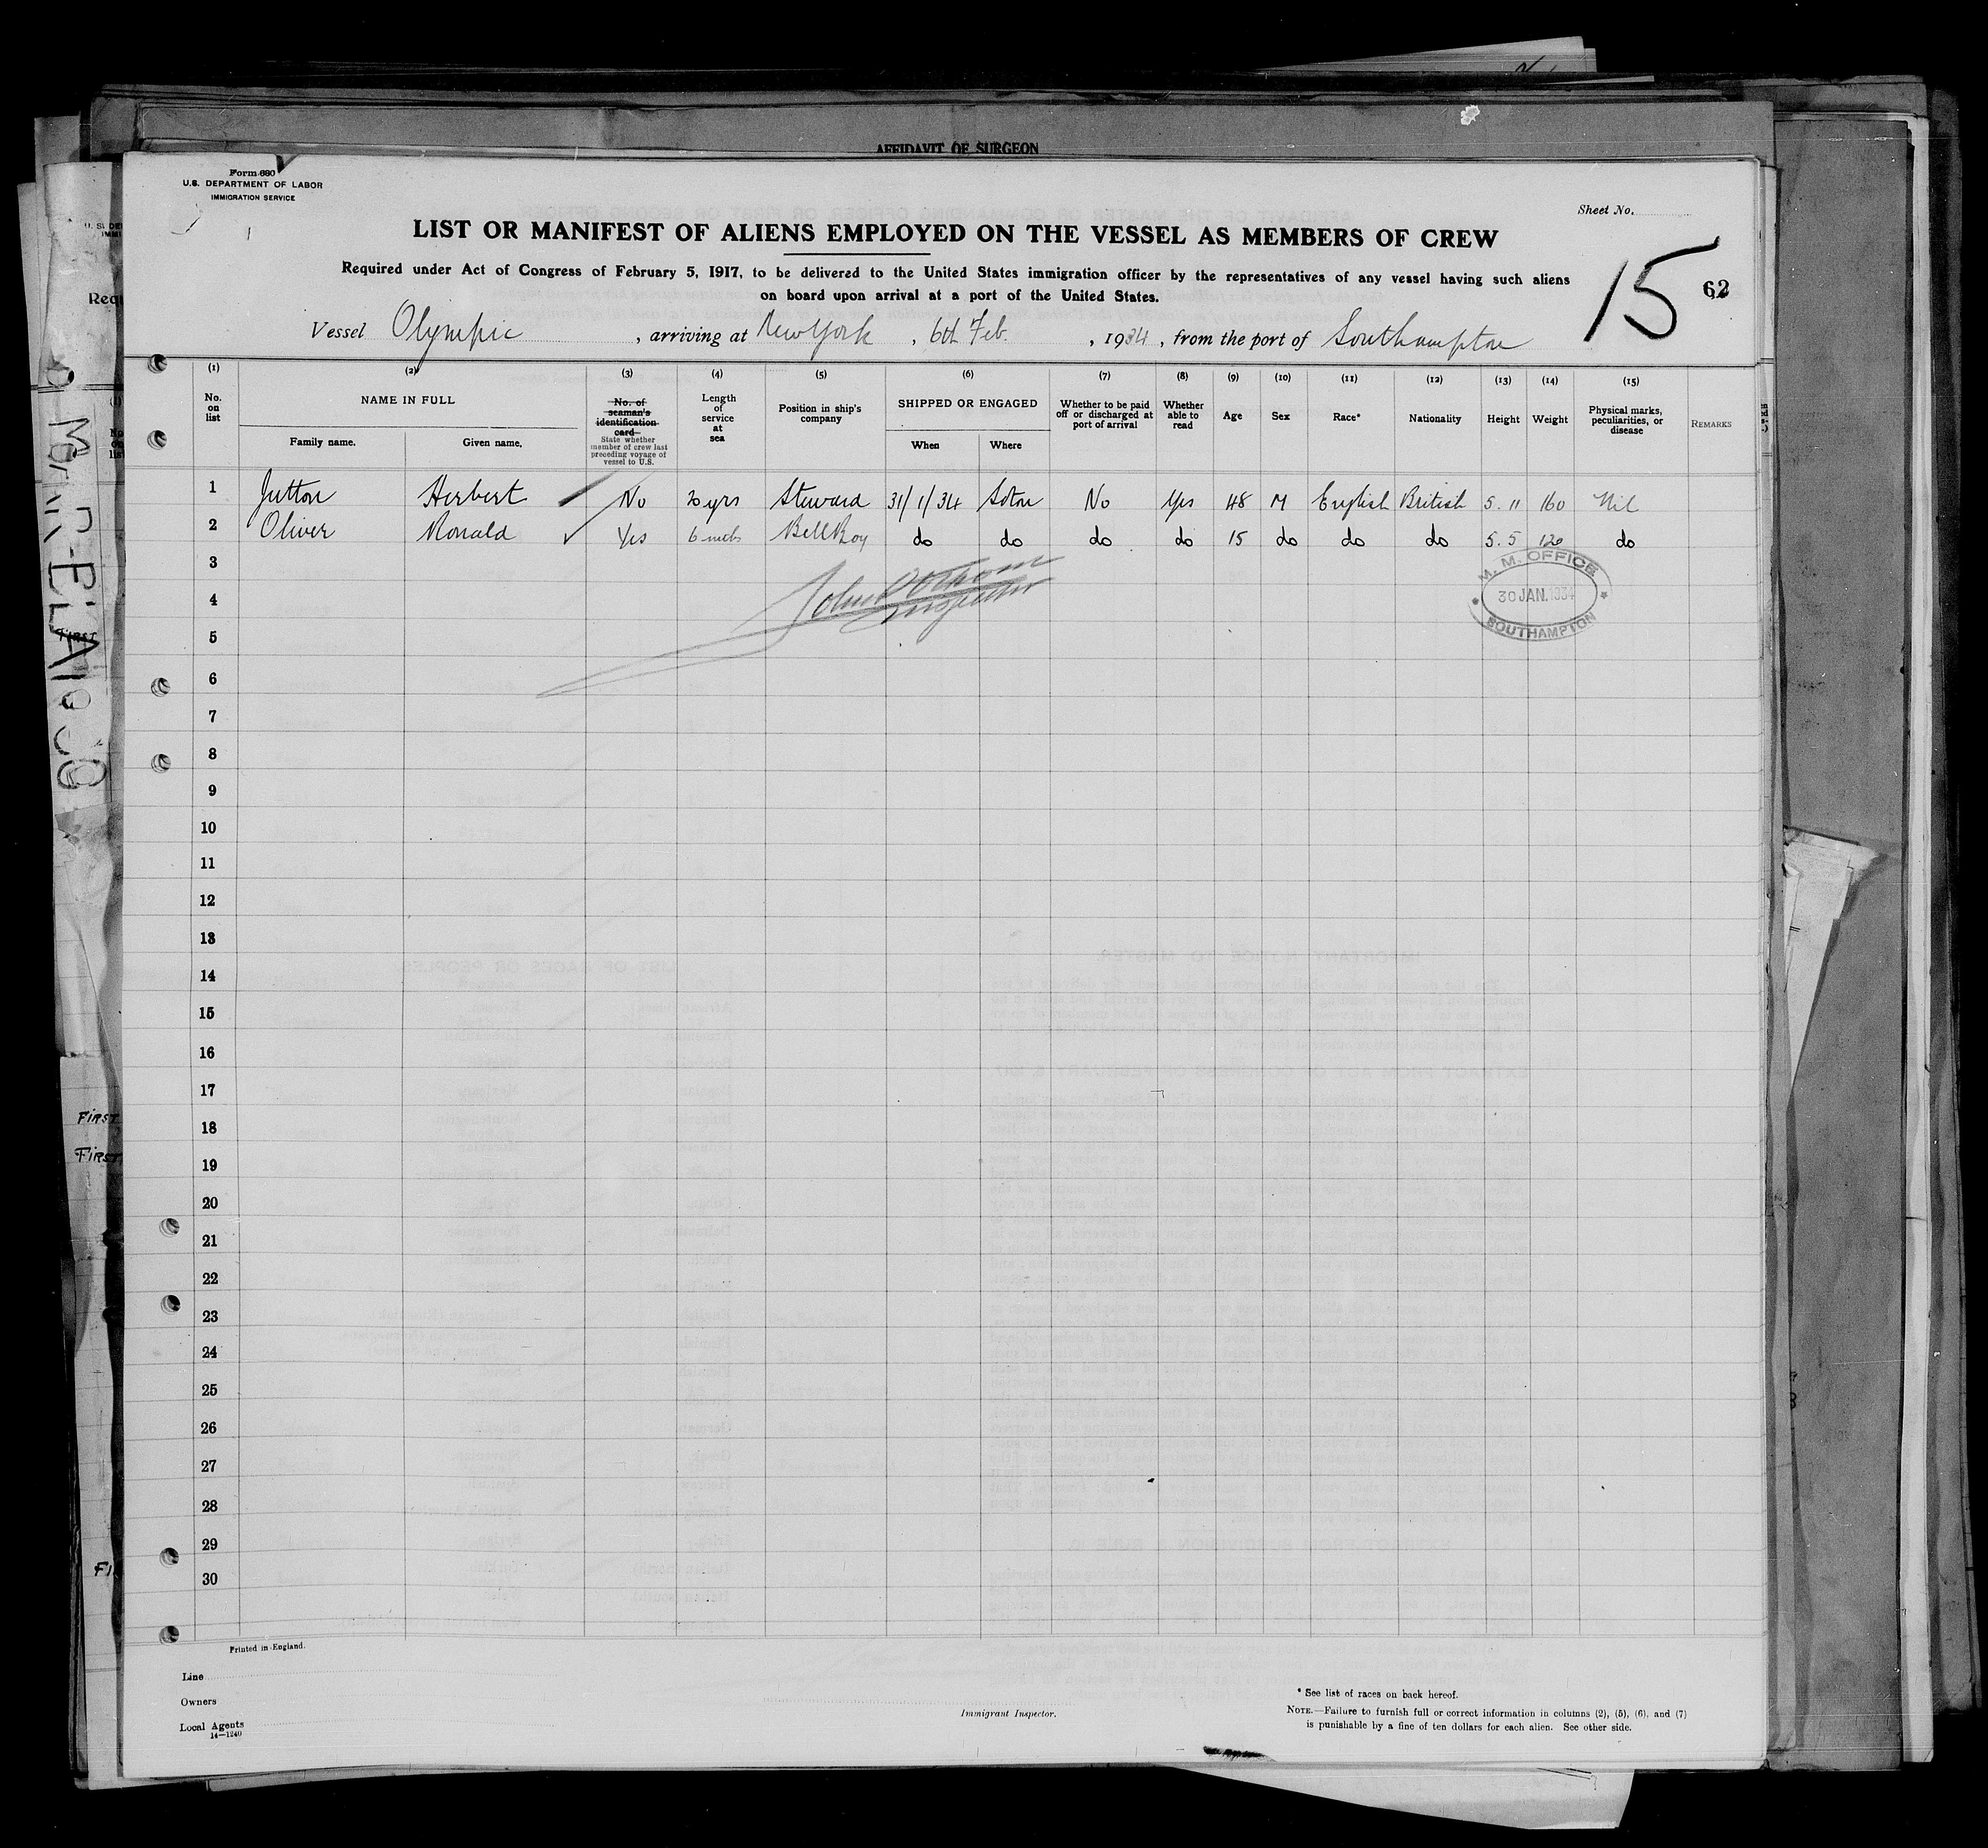 AFFIDAVIT OF SURGEON
Form 680
U.S. DEPARTMENT OF LABOR
IMMIGRATION SERVICE
Sheet No.
LIST OR MANIFEST OF ALIENS EMPLOYED ON THE VESSEL AS MEMBERS OF CREW
Required under Act of Congress of February 5, 1917, to be delivered to the United States immigration officer by the representatives of any vessel having such aliens
on board upon arrival at a port of the United States.
15 62
Vessel Olympic, arriving at New York, 6th Feb., 1934, from the port of Southampton
(1) (2) (3) (4) (5) (6) (7) (8) (9) (10) (11) (12) (13) (14) (15)
No. on list
NAME IN FULL
Family name. Given name.
No. of seaman's identification card
State whether member of crew last preceding voyage of vessel to U.S.
Length of service at sea
Position in ship's company
SHIPPED OR ENGAGED
When Where
Whether to be paid off or discharged at port of arrival
Whether able to read
Age
Sex
Race*
Nationality
Height
Weight
Physical marks, peculiarities, or disease
REMARKS
1 Jutton Herbert No 20 yrs Steward 31/1/34 Soton No Yes 48 M English British 5.11 160 Nil
2 Oliver Ronald ✓ Yes 6 mths Bell Boy do do do do 15 do do do 5.5 120 do
3
4
5
6
7
8
9
10
11
12
13
14
15
16
17
18
19
20
21
22
23
24
25
26
27
28
29
30
Inspector
M. M. OFFICE
30 JAN. 1934
SOUTHAMPTON
FIRST
FIRST
Printed in England.
Line
Owners
Local Agents
14—1240
Immigrant Inspector.
* See list of races on back hereof.
NOTE.—Failure to furnish full or correct information in columns (2), (5), (6), and (7)
is punishable by a fine of ten dollars for each alien. See other side.